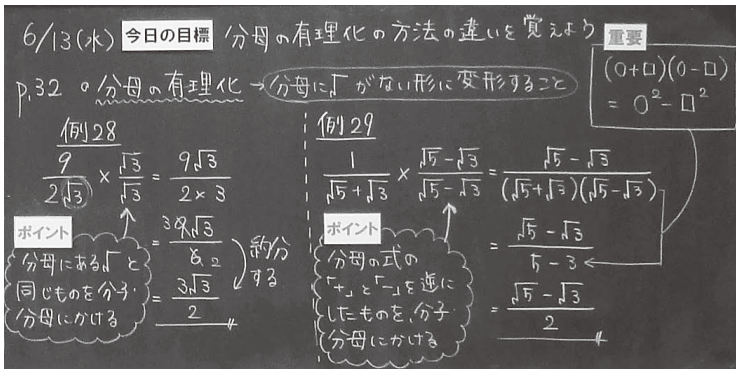 6/13(水) 今日の目標 分母の有理化の方法の違いを覚えよう
重要
(○+□)(○-□)
= ○² - □²
p.32 ○分母の有理化 → 分母に√がない形に変形すること
例28
9/2√3 × √3/√3 = 9√3/2×3
= 3 9√3/6 2
約分する
= 3√3/2
ポイント
分母にある√と
同じものを分子・
分母にかける
例29
1/√5+√3 × √5-√3/√5-√3 = √5-√3/(√5+√3)(√5-√3)
= √5-√3/5-3
= √5-√3/2
ポイント
分母の式の
「+」と「-」を逆に
したものを、分子・
分母にかける